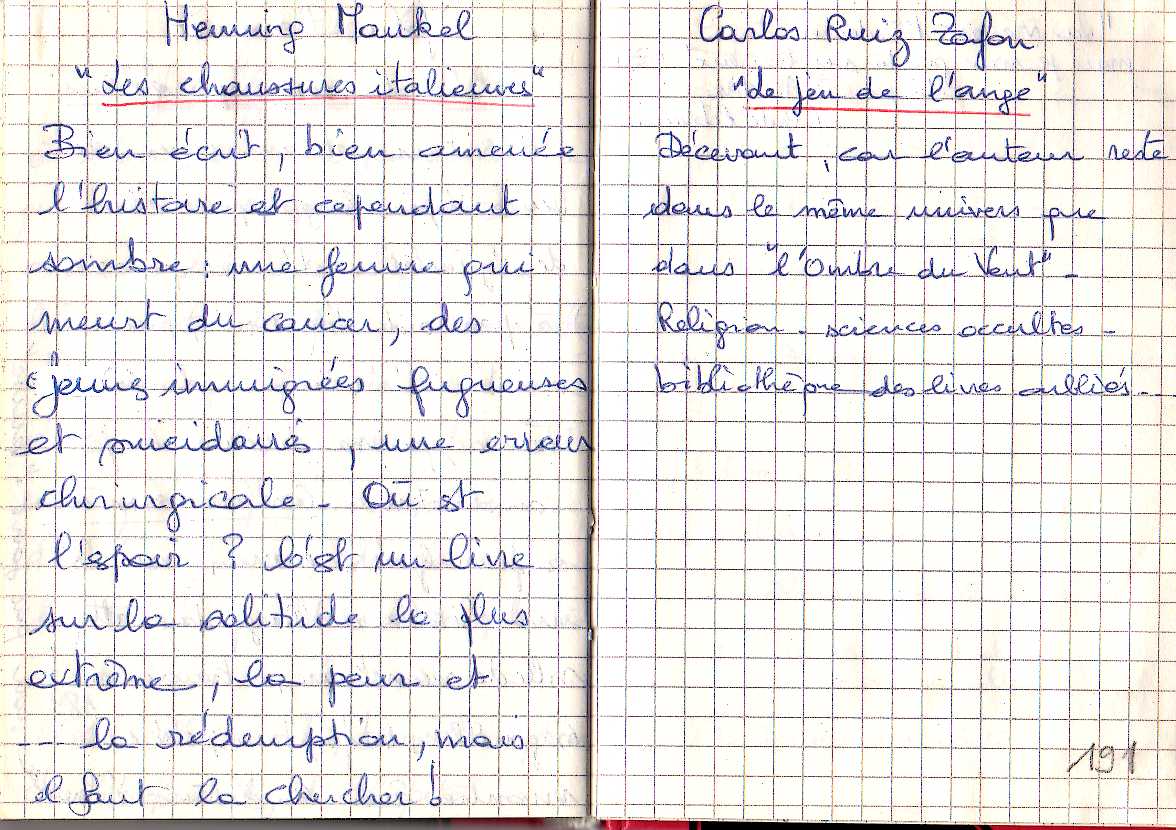 Henning Mankel
"Les chaussures italiennes"
Bien écrit, bien amenée
l'histoire et cependant
sombre : une femme qui
meurt du cancer, des
jeunes immigrées fugueuses
et suicidaires, une erreur
chirurgicale - Où est
l'espoir ? C'est un livre
sur la solitude la plus
extrême, la peur et
... la rédemption, mais
il faut la chercher !
Carlos Ruiz Zafon
"Le jeu de l'ange"
Décevant, car l'auteur reste
dans le même univers que
dans "l'Ombre du Vent" -
Religion - sciences occultes -
bibliothèque des livres oubliés...
191